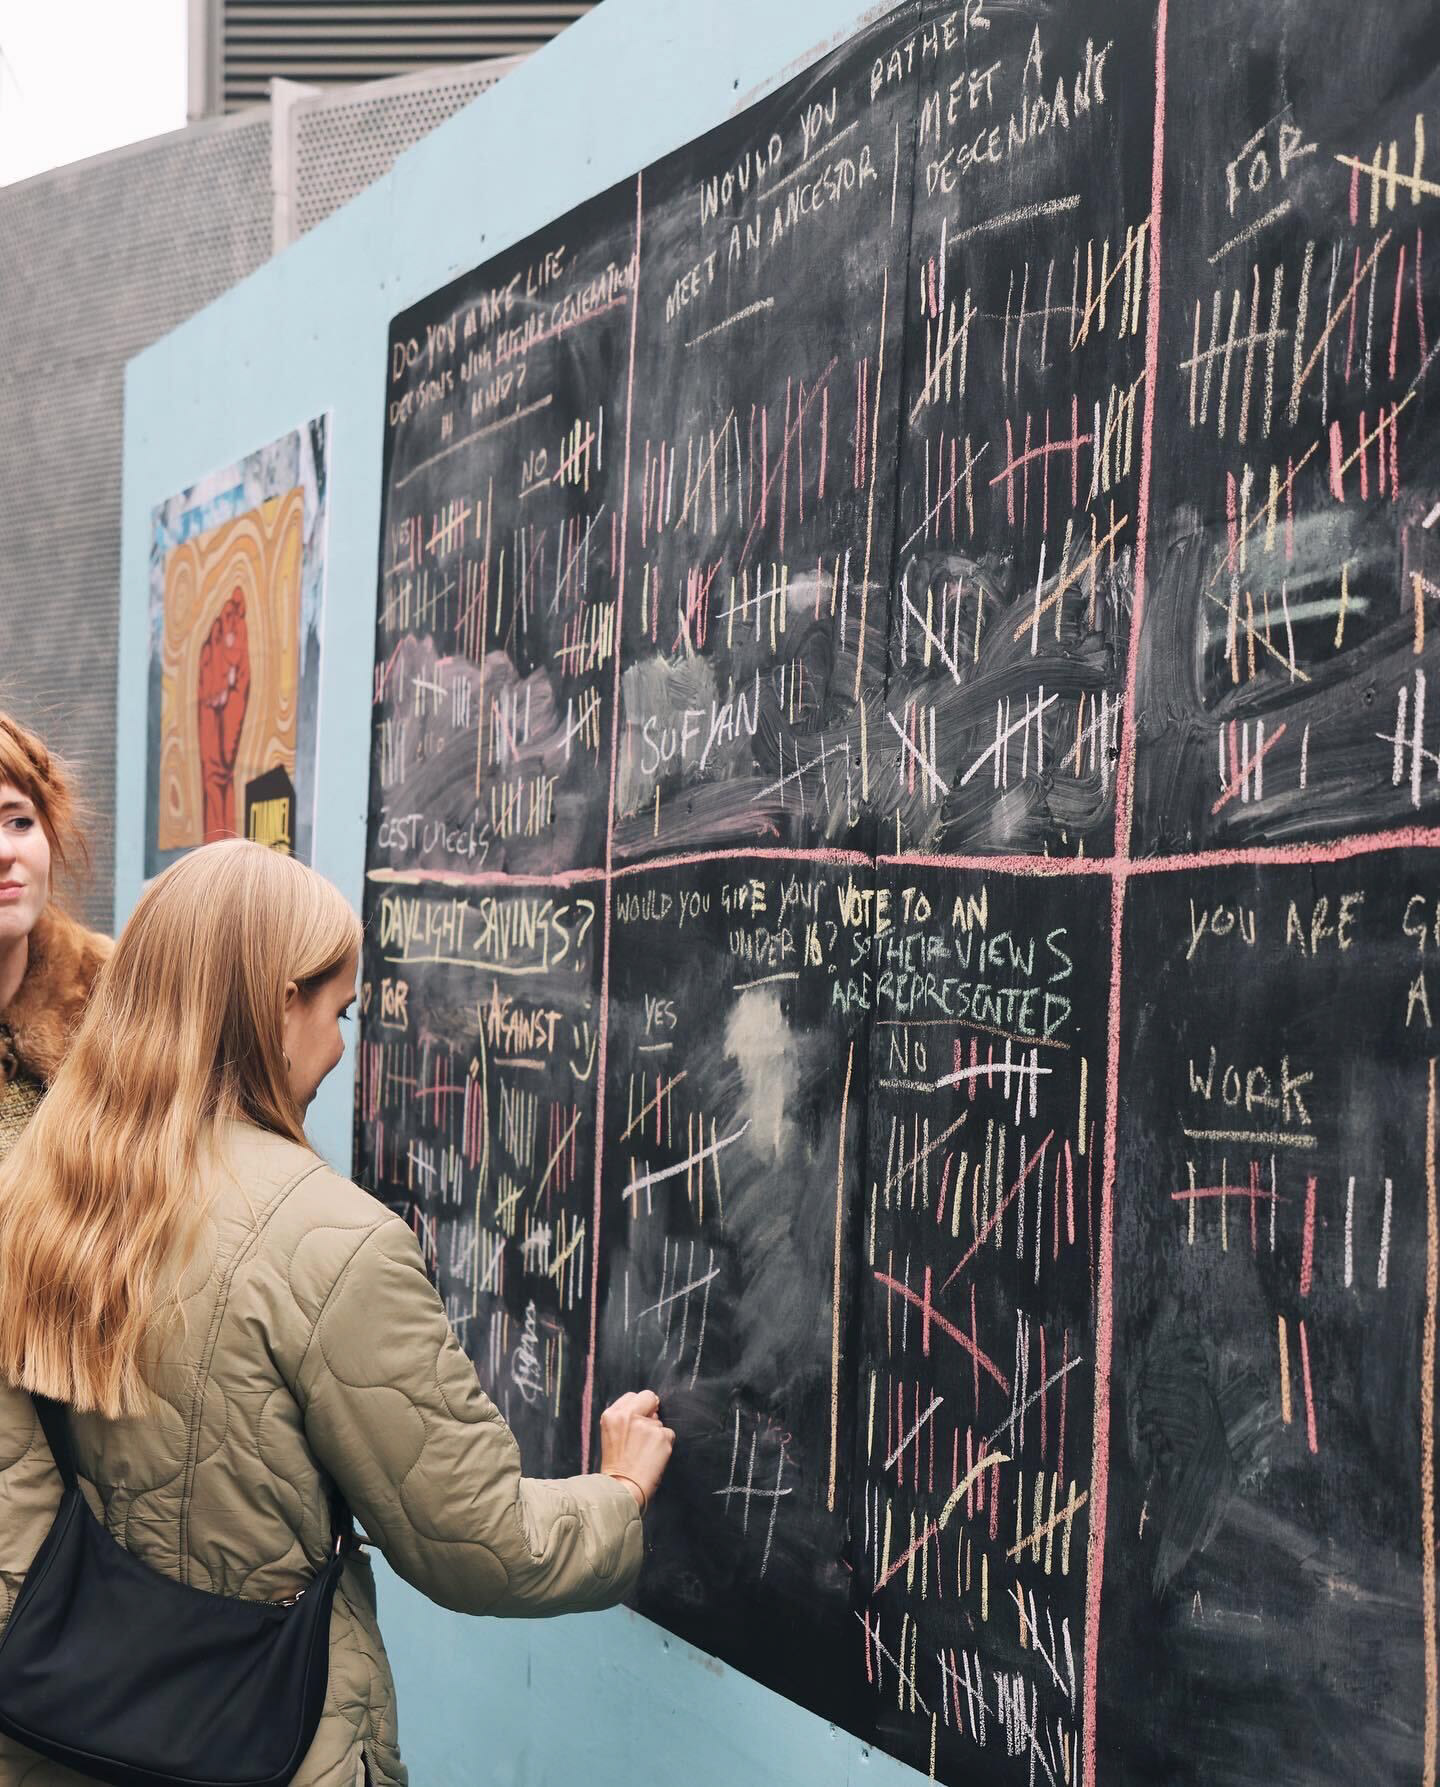 DO YOU MAKE LIFE
DECISIONS WITH FUTURE GENERATIONS
IN MIND?
YES
NO
WOULD YOU RATHER
MEET AN ANCESTOR
MEET A
DESCENDANT
FOR
SUFJAN
DAYLIGHT SAVINGS?
FOR
AGAINST
WOULD YOU GIVE YOUR VOTE TO AN
UNDER 16? SO THEIR VIEWS
ARE REPRESENTED.
YES
NO
YOU ARE
A
WORK